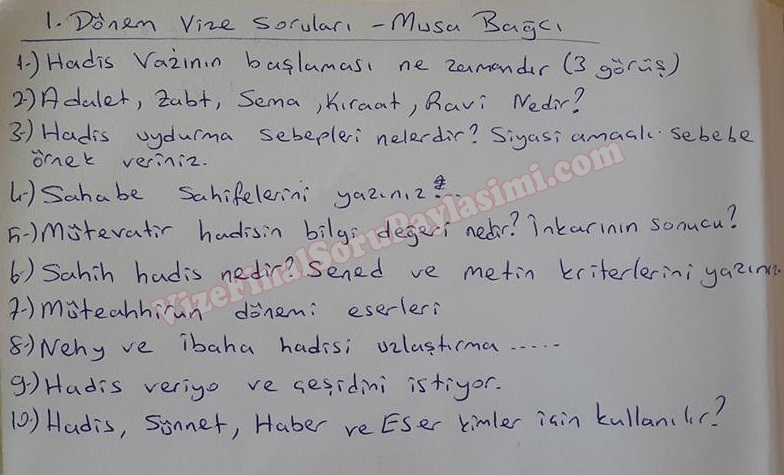 1. Dönem Vize Soruları - Musa Bağcı
1-) Hadis Vaz'ının başlaması ne zamandır (3 görüş)
2-) Adalet, Zabt, Sema, Kıraat, Ravi Nedir?
3-) Hadis uydurma sebepleri nelerdir? Siyasi amaçlı sebebe
örnek veriniz.
4-) Sahabe Sahifelerini yazınız?..
5-) Mütevatir hadisin bilgi değeri nedir? İnkarının sonucu?
6-) Sahih hadis nedir? Sened ve metin kriterlerini yazını.
7-) Müteahhirun dönemi eserleri
8-) Nehy ve ibaha hadisi uzlaştırma .....
9-) Hadis veriyo ve çeşidini istiyor.
10-) Hadis, Sünnet, Haber ve Eser kimler için kullanılır?
VizeFinalSoruPaylasimi.com